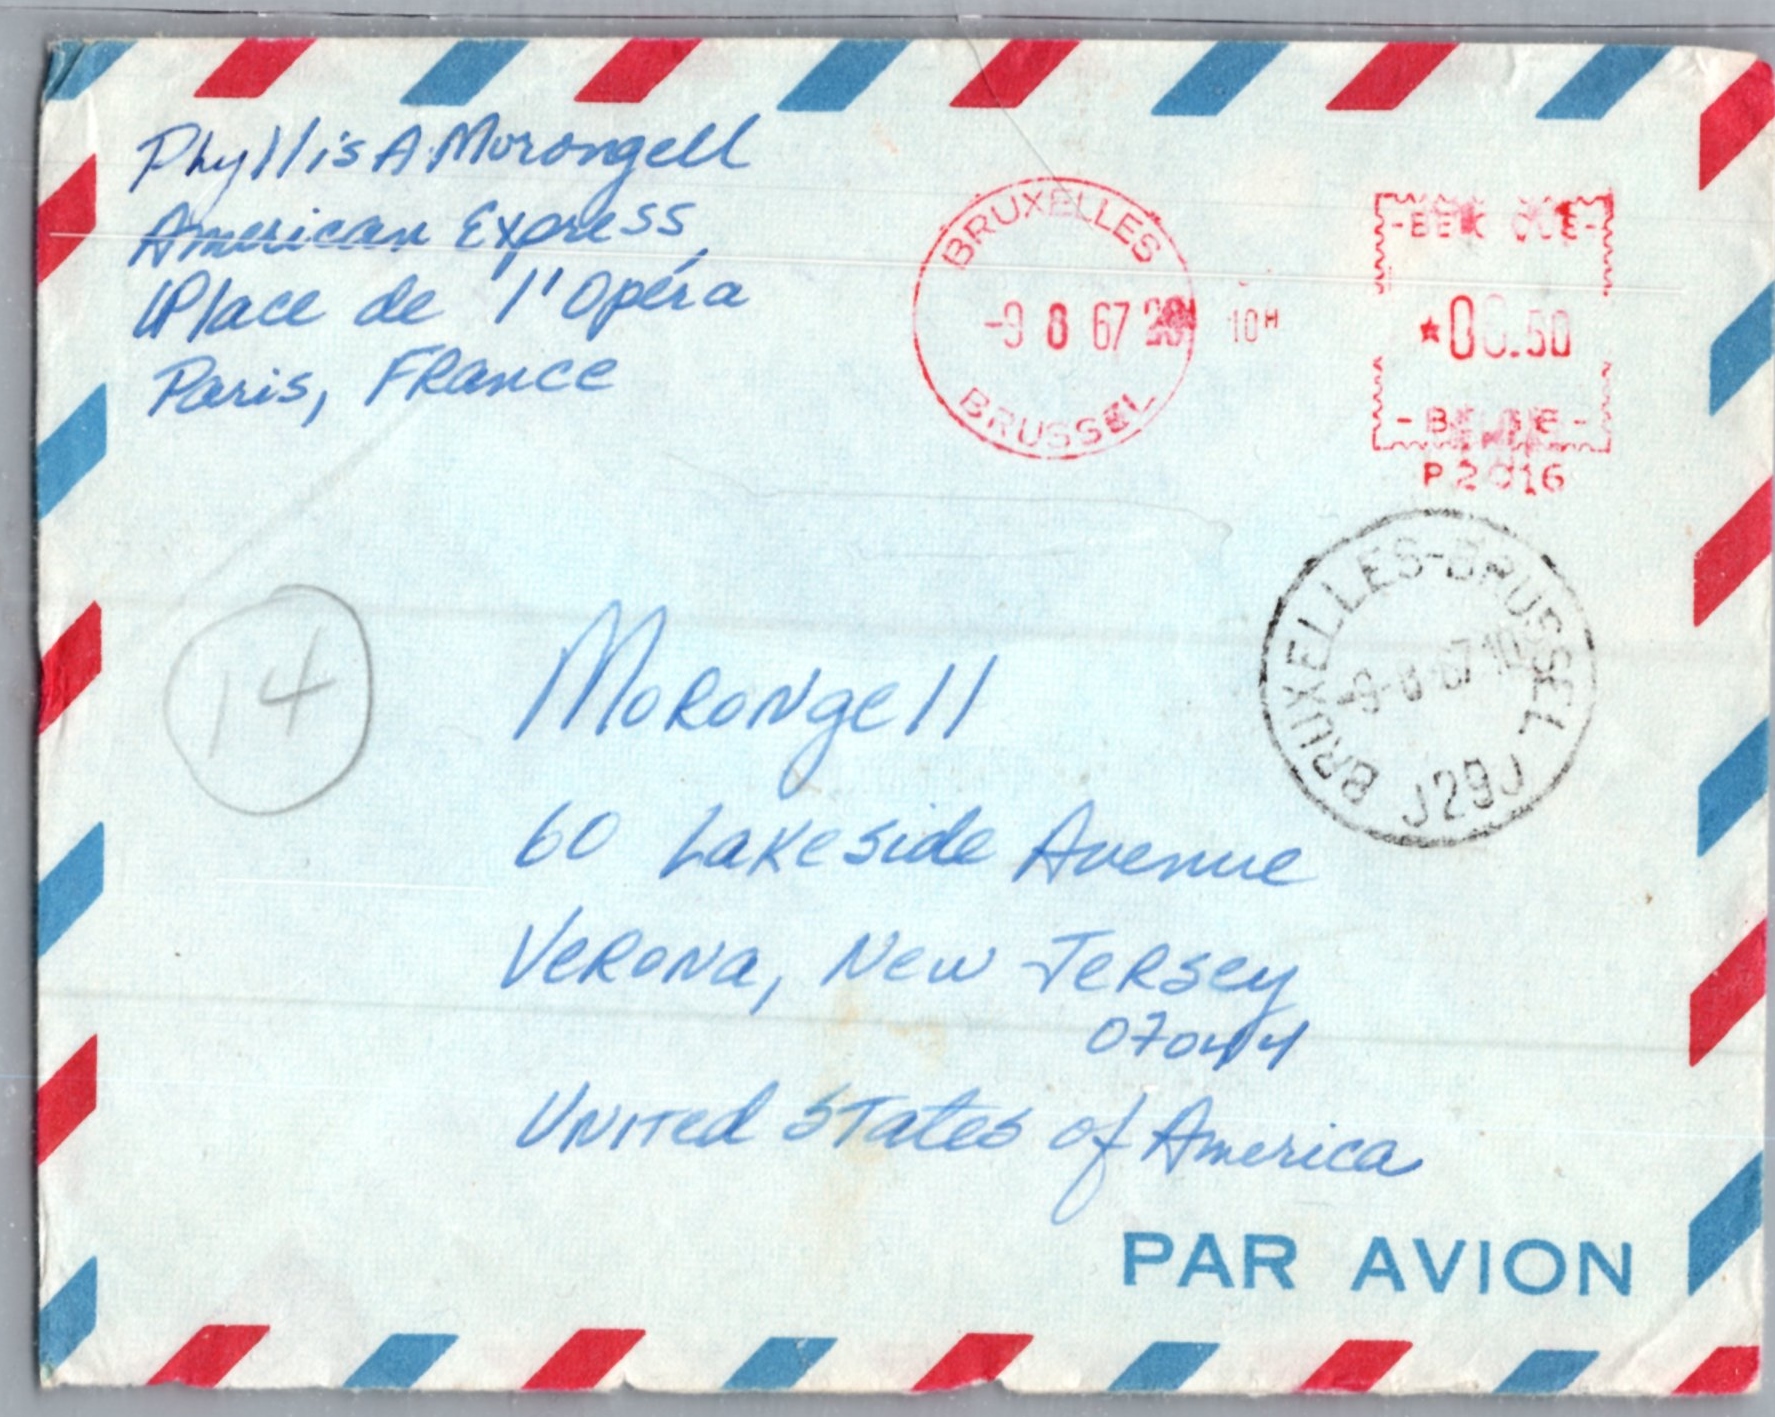 Phyllis A. Morongell
American Express
1 Place de l'Opéra
Paris, France
BRUXELLES
-9 8 67
10H
BRUSSEL
*00.50
P2016
BRUXELLES-BRUSSEL BRUXELLES
-9-8-67 10
J29J
14
Morongell
60 Lakeside Avenue
Verona, New Jersey
07044
United States of America
PAR AVION